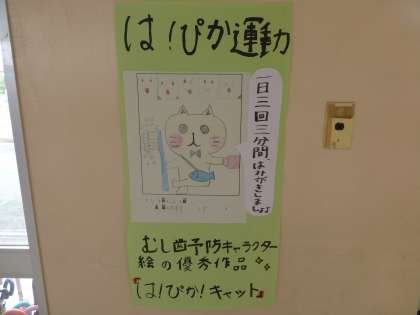 は!ぴか運動
一日三回三分間、はみがきしましょう
むし歯予防キャラクター
絵の優秀作品
『は!ぴか!キャット』